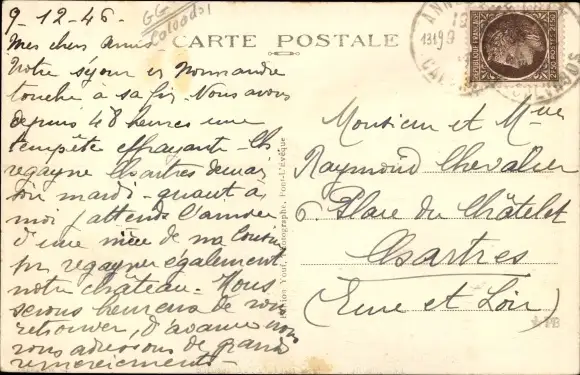 9-12-46-
GG
Calvados
Mes chers Amis
CARTE POSTALE
Notre séjour en Normandie
touche à sa fin. Nous avons
depuis 48 heures une
tempête effrayante. Ch
regagne Chartres demain
soir mardi - quant à
moi j'attends l'arrivée
d'une nièce de ma cousine
pr regagner également
notre château. Nous
serons heureux de vous
retrouver, d'avance nous
vous adressons de grands
remerciements
Monsieur et Mme
Raymond Chevalier
6. Place du Châtelet
Chartres
(Eure et Loir)
Photographe, Pont-l'Évêque
REPUBLIQUE FRANÇAISE
POSTES
2F50
ANN
1319
CALVADOS
PB